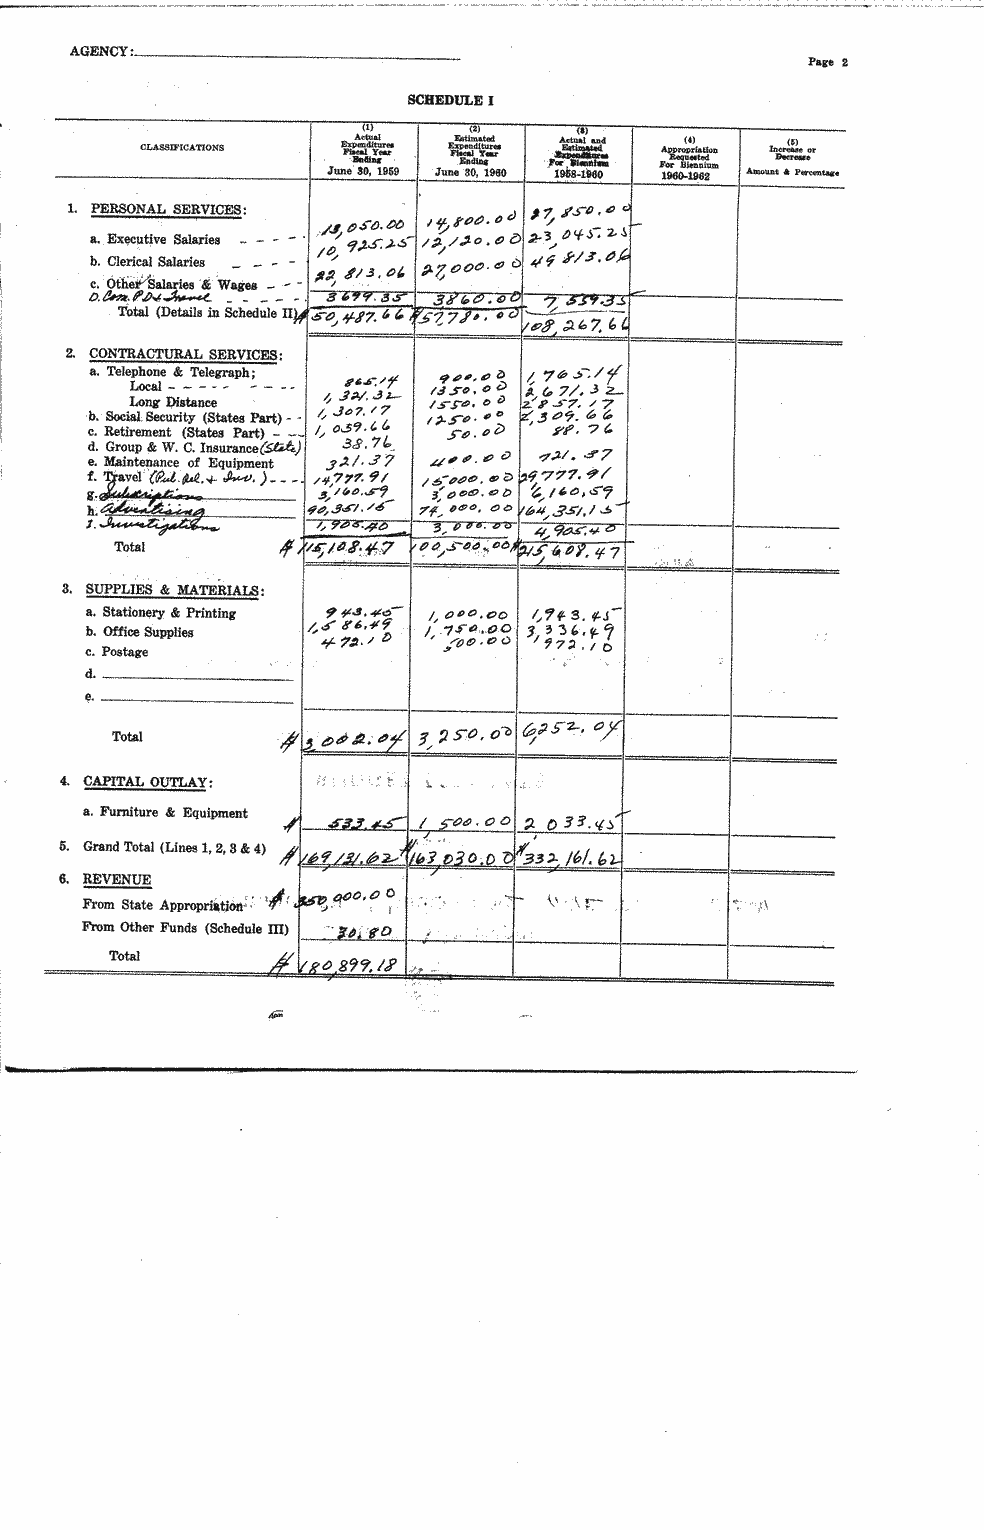 AGENCY:
Page 2
SCHEDULE I
CLASSIFICATIONS
(1) Actual Expenditures Fiscal Year Ending June 30, 1959
(2) Estimated Expenditures Fiscal Year Ending June 30, 1960
(3) Actual and Estimated Expenditures For Biennium 1958-1960
(4) Appropriation Requested For Biennium 1960-1962
(5) Increase or Decrease Amount & Percentage
1. PERSONAL SERVICES:
a. Executive Salaries - - - - 13,050.00 14,800.00 27,850.00
b. Clerical Salaries - - - - 10,925.25 12,120.00 23,045.25
c. Other Salaries & Wages - - - 22,813.06 27,000.00 49,813.06
D. Com. P.D. & Travel - - - - - 3699.35 3860.00 7,559.35
Total (Details in Schedule II) $50,487.66 $57,780.00 108,267.66
2. CONTRACTURAL SERVICES:
a. Telephone & Telegraph;
Local - - - - - - - - - 865.14 900.00 1,765.14
Long Distance 1,321.32 1350.00 2,671.32
b. Social Security (States Part) - - 1,307.17 1550.00 2,857.17
c. Retirement (States Part) - - - 1,059.66 1250.00 2,309.66
d. Group & W. C. Insurance (State) 38.76 50.00 88.76
e. Maintenance of Equipment 321.37 400.00 721.37
f. Travel (Pub. Rel. & Inv.) - - - - 14,777.91 15,000.00 29,777.91
g. Subscriptions 3,160.59 3,000.00 6,160.59
h. Advertising 90,351.15 74,000.00 164,351.15
I. Investigations 1,905.40 3,000.00 4,905.40
Total $115,108.47 100,500.00 $215,608.47
3. SUPPLIES & MATERIALS:
a. Stationery & Printing 943.45 1,000.00 1,943.45
b. Office Supplies 1,586.49 1,750.00 3,336.49
c. Postage 472.10 500.00 972.10
d.
e.
Total $3,002.04 3,250.00 6,252.04
4. CAPITAL OUTLAY:
a. Furniture & Equipment $ 533.45 1,500.00 2,033.45
5. Grand Total (Lines 1, 2, 3 & 4) $169,131.62 $163,030.00 $332,161.62
6. REVENUE
From State Appropriation $350,000.00
From Other Funds (Schedule III) 30.80
Total $180,899.18